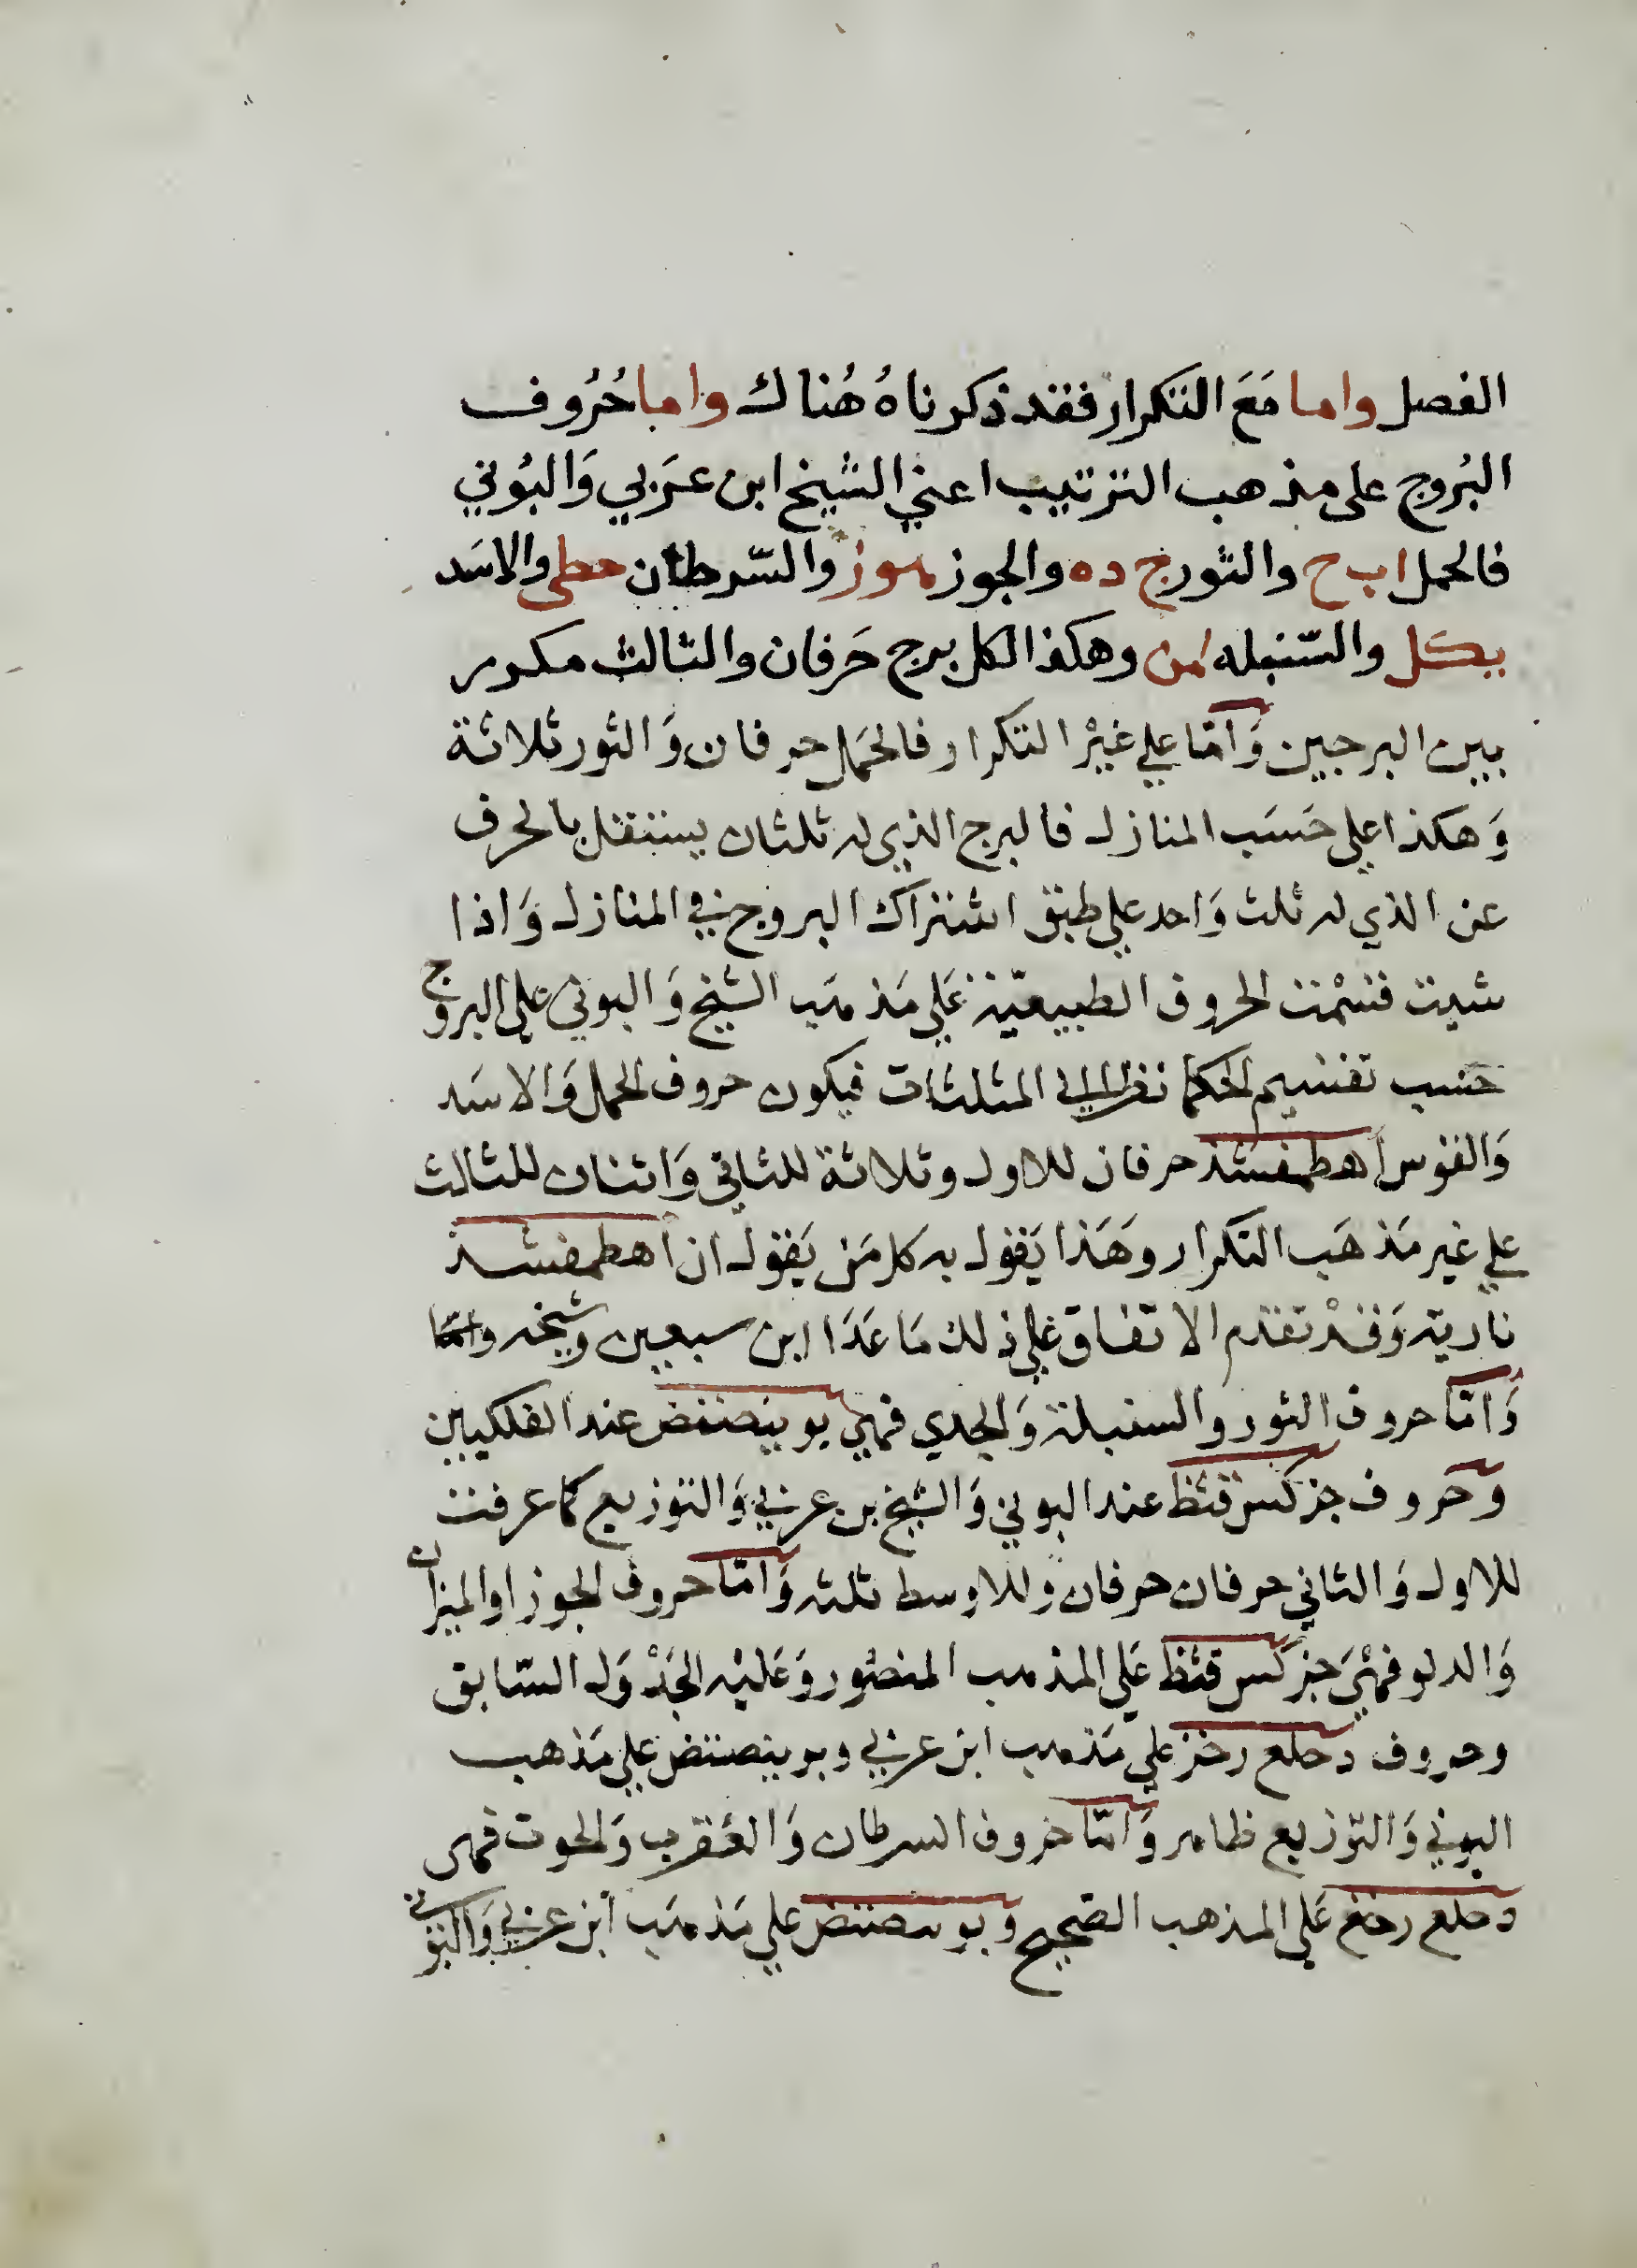 الفصل واما مَعَ التكرار فقد ذكرناهُ هُناك واما حُرُوف
البُروج على مذهب الترتيب اعني الشيخ ابن عَرَبي وَالبُوني
فالحمل اب ح والثور ج ده والجوز هوز والسّرطان حطي والاسَد
يكل والسّنبله لمن وهكذا لكل برج حَرفان والثالث مكرر
بين البرجين وَامّا علي غيْر التكرار فالحَمل حرفان وَالثور ثلاثة
وَهكذا علي حَسَب المنازل فالبرج الذي له ثلثان يستقل بالحرف
عن الذي له ثلث وَاحد علي طبق اشتراك البروج في المنازل وَاذا
شيت قسْمت الحروف الطبيعيّة عَلي مَذهَب الشيخ وَالبوني علي البروج
حَسب تقسيم الحكما نظرا الي المثلثات فيكون حروف الحمل وَالاسَد
وَالقوس اهطمفشذ حرفان للاول وثلاثة للثاني وَاثنان للثالث
علي غير مَذهَب التكرار وهَذا يَقول به كل مَن يَقول ان اهطمفشذ
نارية وَقدْ تقدم الاتفاق علي ذلك مَا عَدَا ابن سبعين وشيخه وامّا
وَامّا حروف الثور والسنبلة وَالجدي فهي بوينصتض عند الفلكيين
وَحروف جزكس قثظ عند البوني وَالشيخ بن عربي وَالتوزيع كما عرفت
للاول وَالثاني حرفان حرفان وللاوسط ثلثه وَامّا حروف الجوزا والميزان
وَالدلو فهْيَ جزكس قثظ عَلي المذهب المنصُور وَعَليْه الجَدْوَل السّابق
وحروف دحلع رخغ علي مَذهب ابن عربي وبوينصتض علي مَذهب
البوني وَالتوزيع ظاهر وَامّا حروف السرطان وَالعَقرب وَالحوت فهى
دحلع رخغ عَلي المذهب الصّحيح وبوينصتض علي مَذهَب ابن عربي وَالبوني